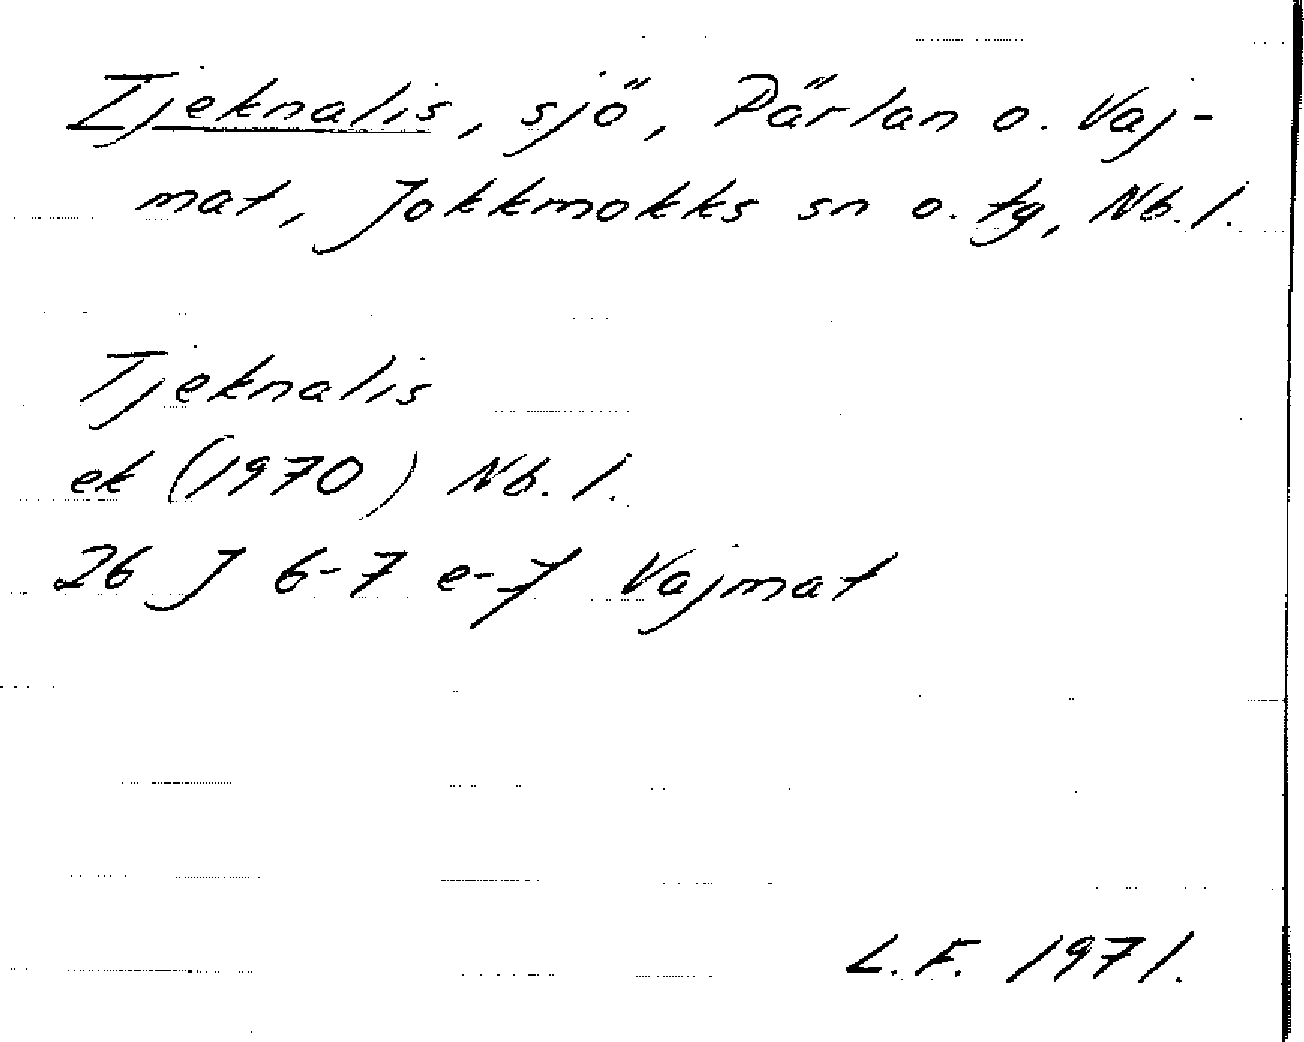 Tjeknalis, sjö, Pärlan o. Vaj-
mat, Jokkmokks sn o. tg, Nb. l.
Tjeknalis
ek (1970) Nb. l.
26 J 6-7 e-f Vajmat
L.F. 1971.